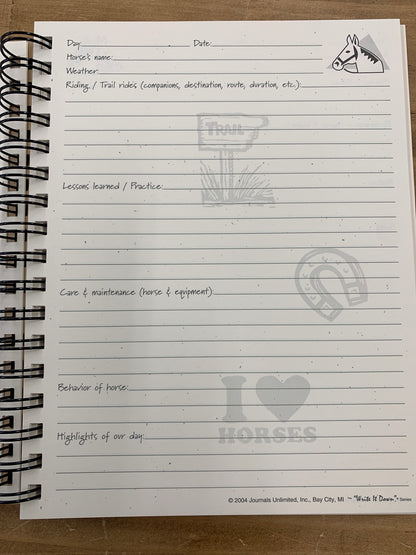 Day: Date:
Horse's name:
Weather:
Riding / Trail rides (companions, destination, route, duration, etc.):
TRAIL
Lessons learned / Practice:
Care & maintenance (horse & equipment):
Behavior of horse:
I ♥
HORSES
Highlights of our day:
© 2004 Journals Unlimited, Inc., Bay City, MI ~ "Write It Down"® Series